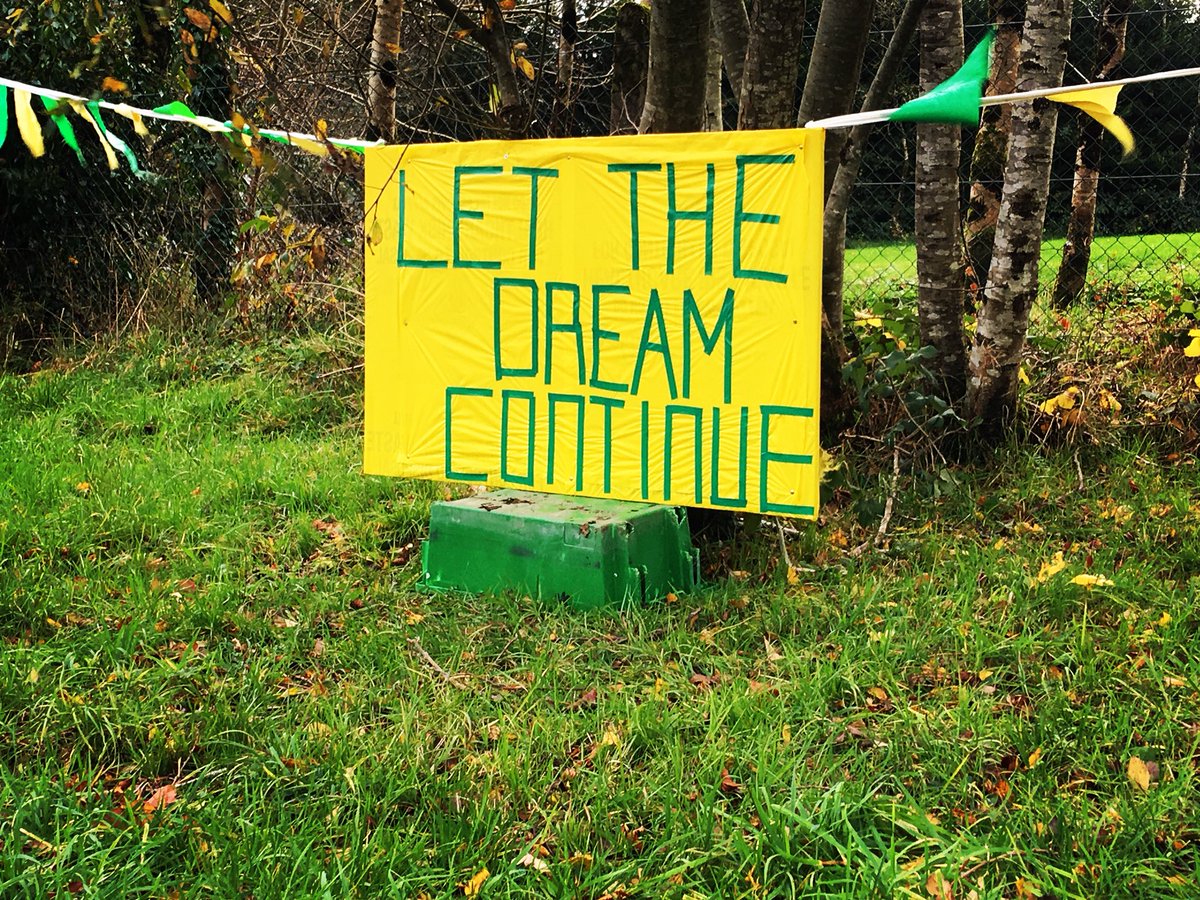 LET THE
DREAM
CONTINUE